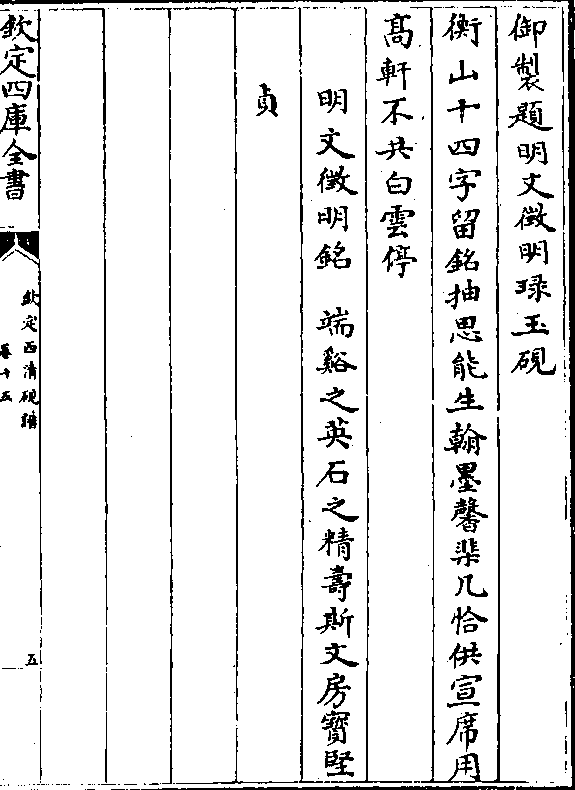 御製題明文徵明琭玉硯
衡山十四字留銘抽思能生翰墨馨棐几恰供宣席用
高軒不共白雲停
明文徵明銘　端谿之英石之精壽斯文房寶堅
貞
欽定四庫全書
欽定西清硯譜
卷十五
五